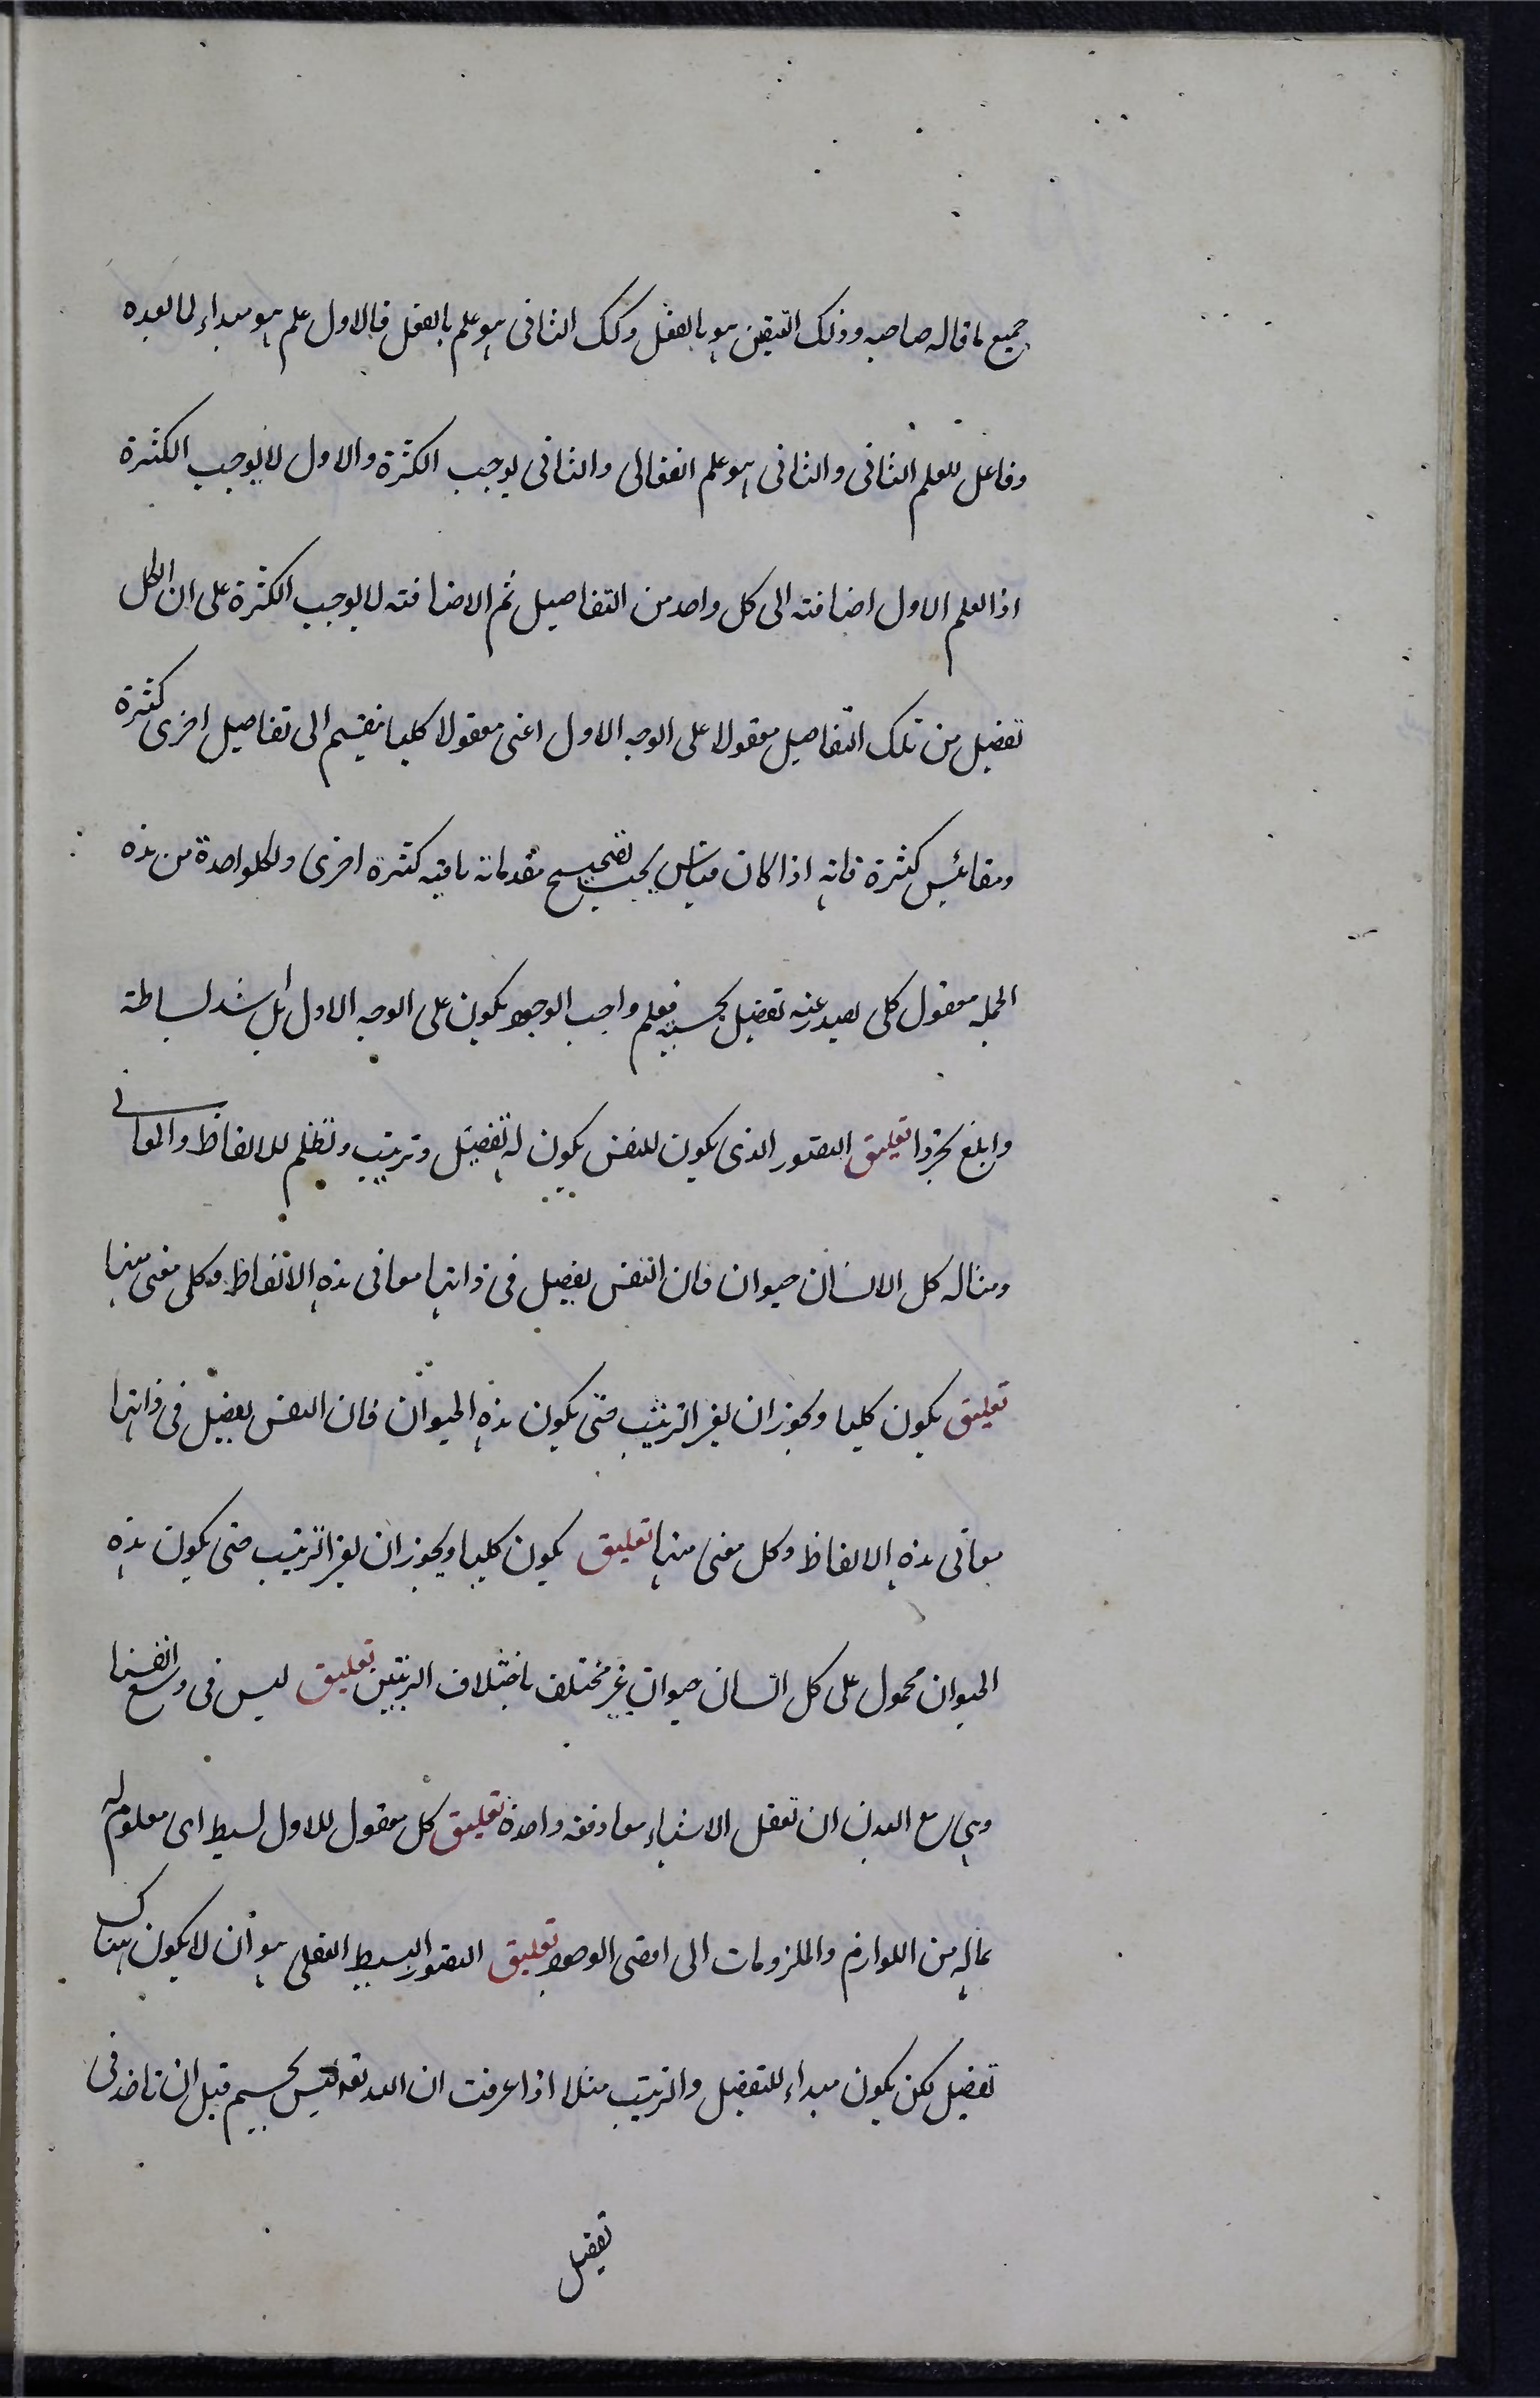 جميع ما قاله صاحبه وذلك التيقن هو بالفعل وكك الثانى هو علم بالفعل فالاول علم هو مبداء لما بعده
وفاعل للعلم الثانى والثانى هو علم انفعالى والثانى يوجب الكثرة والاول لا يوجب الكثرة
اذ العلم الاول اضافته الى كل واحد من التفاصيل ثم الاضافته لا يوجب الكثرة على ان الكل
تفصيل من تلك التفاصيل معقولا على الوجه الاول اعنى معقولا كليا ينقسم الى تفاصيل اخرى كثيرة
ومقائيس كثيرة فانه اذا كان قياس يجب تصحيح مقدماته باقيه كثيرة اخرى ولكل واحدة من هذه
الجمله معقول كلى يصدر عنه تفصيل بحسبه فعلم واجب الوجود يكون على الوجه الاول بل اشد بساطة
وابلغ تجردا تعليق التصور الذى يكون للنفس يكون له تفصيل وترتيب ونظم للالفاظ والمعانى
ومثاله كل الانسان حيوان فان النفس يفصل فى ذاتها معانى هذه الالفاظ وكل معنى منها
تعليق يكون كليا ويجوز ان يغير الترتيب حتى يكون هذه الحيوان فان النفس يفصل فى ذاتها
معانى هذه الالفاظ وكل معنى منها تعليق يكون كليا ويجوز ان يغير الترتيب حتى يكون هذه
الحيوان محمول على كل انسان حيوان غير مختلف باختلاف الترتيبين تعليق ليس فى وسع انفسنا
وهى مع البدن ان تعقل الاشياء معا دفعه واحدة تعليق كل معقول للاول بسيط اى معلوم له
بماله من اللوازم والملزومات الى اقصى الوجود تعليق التصور البسيط العقلى هو أن لا يكون هناك
تفصيل لكن يكون مبداء للتفصيل والترتيب مثلا اذا عرفت ان الله تعالى ليس بجسم قبل ان تاخذ فى
تفصيل